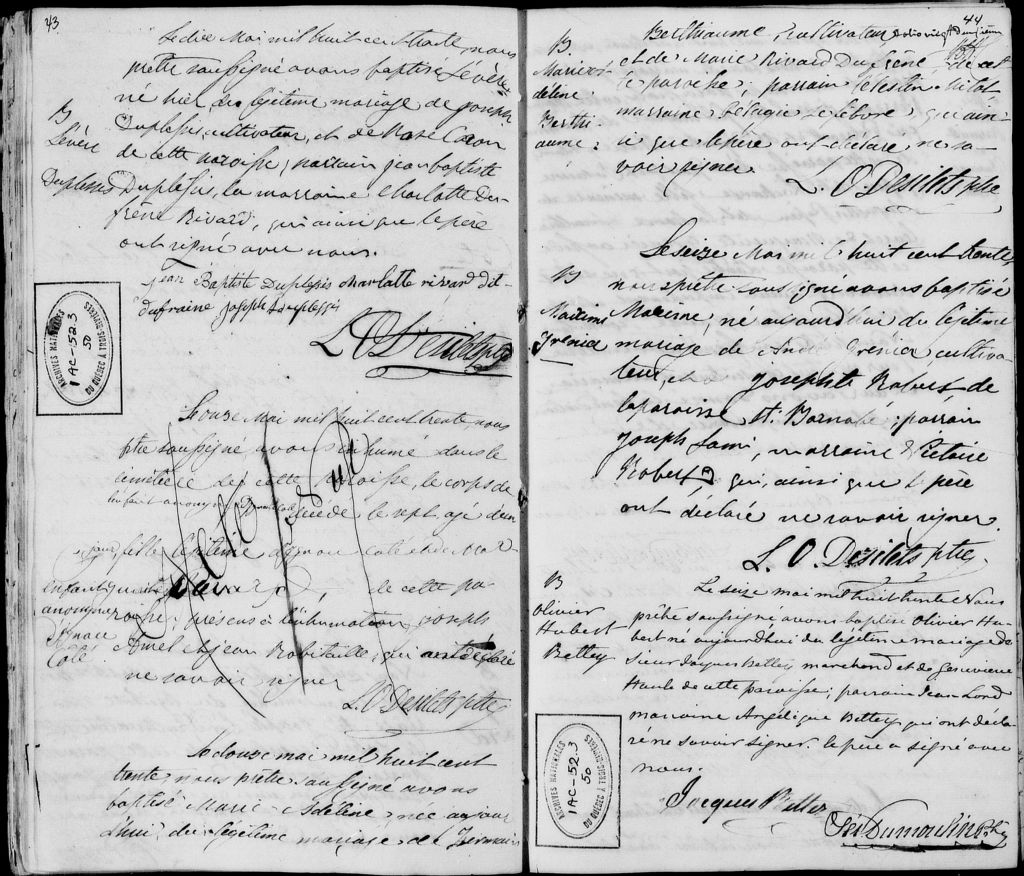 43
Le dix Mai mil huit cent trente, nous
prêtre soussigné avons baptisé Sévère
né hier du légitime mariage de joseph
Duplessis, cultivateur, et de Rose Caron
de cette paroisse; parrain jean baptiste
Duplessis, la marraine Charlotte Du-
frêne Rivard, qui ainsi que le père
ont signé avec nous.
B
Sévère
Duplessis
jean Baptiste Duplesis charlatte rivard dit
dufraine joseph duplessis
L. O. Desilets ptre
ARCHIVES NATIONALES
1AC-52.3
50
DU QUÉBEC À TROIS-RIVIÈRES
Le onze Mai mil huit cent trente, nous
ptre soussigné avons inhumé dans le
cimetière de cette paroisse, le corps de
un enfant anonyme
décédé le sept, agé d'un
jour fille légitime d'ignace Coté et de Mar-
de cette pa-
roisse; présens à l'inhumation, joseph
Amel et jean Robitaille, qui ont déclaré
ne savoir signer
L. O. Desilets ptre
anonyme
d'ignace
Coté
Le douze mai mil huit cent
trente nous prêtre soussigné avons
baptisé Marie Adelène née aujour
d'hui du légitime mariage de Germain
44
Berthiaume cultivateur
et de Marie Rivard Dufrène, de cet
te paroisse; parrain Célestin
marraine Pélagie Lefebvre qui ain-
si que le père ont déclaré ne sa-
voir signer
B
Marie a-
délène
Berthi-
aume
L. O. Desilets ptre
Le seize Mai mil huit cent trente,
nous prêtre soussigné avons baptisé
Maxime, né aujourd'hui du légitime
mariage de André Grenier cultiva-
teur, et Josephte Robert, de
la paroisse St. Barnabé; parrain
Joseph Lami, marraine Victoire
Robert, qui, ainsi que le père
ont déclaré ne savoir signer.
B
Maxime
Grenier
L. O. Desilets ptre
Le seize mai mil huit trente Nous
prêtre soussigné avons baptisé Olivier Hu-
bert né aujourd'hui du légitime mariage de
Sieur Jacques Bettey marchand et de Geneviève
de cette paroisse; parrain Jean Lord
marraine Angélique Bettey qui ont décla-
ré ne savoir signer. le père a signé avec
nous.
B
Olivier
Hubert
Bettey
Jacques
Dumoulin Ptre
ARCHIVES NATIONALES
1AC-52.3
50
DU QUÉBEC À TROIS-RIVIÈRES